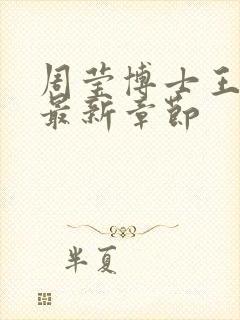 周莹博士王
最新章节
半夏